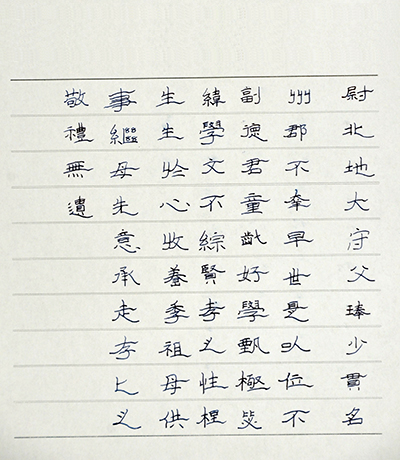 尉北地大守父琫少貫名
州郡不幸早世是以位不
副德君童齔好學甄極毖
緯學文不綜賢孝之性根
生生於心收養季祖母供
事繼母先意承志存亡之
敬禮無遺